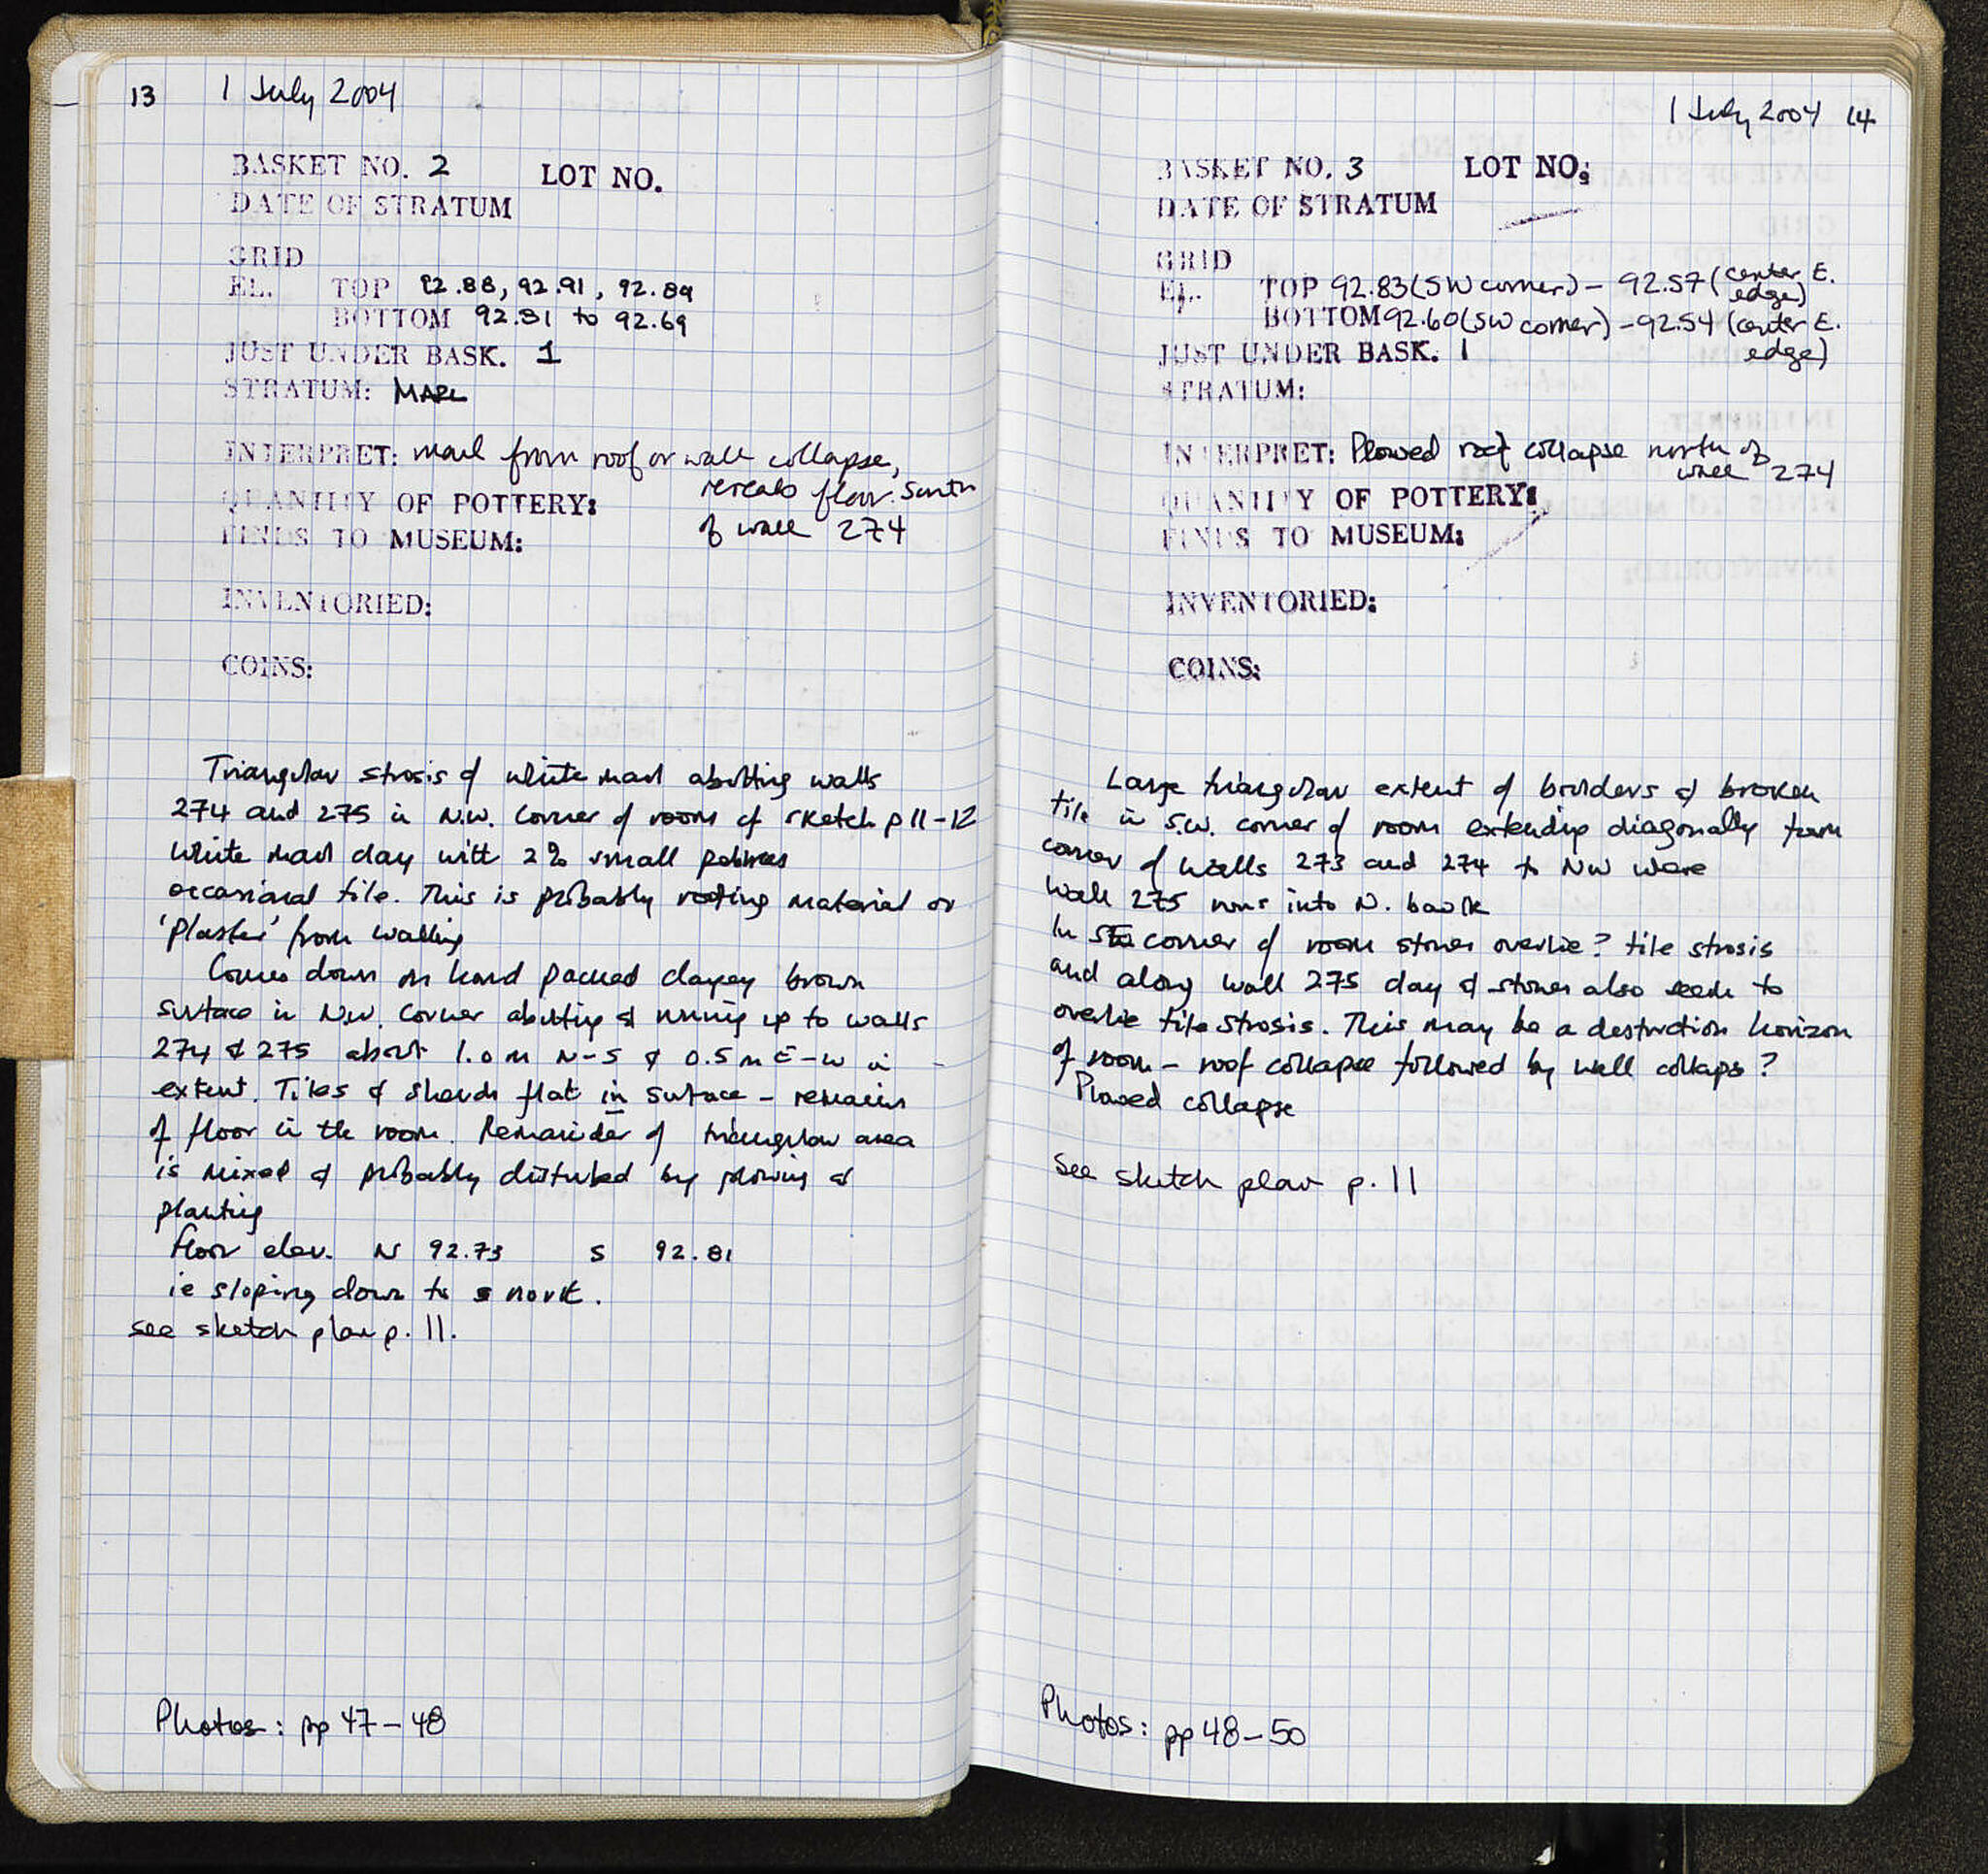 13 1 July 2004
BASKET NO. 2 LOT NO.
DATE OF STRATUM
GRID
EL. TOP 92.88, 92.91, 92.89
BOTTOM 92.81 to 92.69
JUST UNDER BASK. 1
STRATUM: MARL
INTERPRET: marl from roof or wall collapse,
reveals floor. South
QUANTITY OF POTTERY:
of wall 274
FINDS TO MUSEUM:
INVENTORIED:
COINS:
Triangular strosis of white marl abutting walls
274 and 275 in N.W. corner of room cf sketch p 11-12
White marl clay with 2% small pebbles
occasional tile. This is probably roofing material or
'plaster' from walling
Comes down on hard packed clayey brown
surface in N.W. corner abutting & running up to walls
274 & 275 about 1.0 m N-S & 0.5 m E-W in
extent. Tiles & sherds flat in surface - remains
of floor in the room. Remainder of triangular area
is mixed & probably disturbed by plowing &
planting
floor elev. N 92.73 S 92.81
ie sloping down to s north.
see sketch plan p. 11.
Photos: pp 47-48
1 July 2004 14
BASKET NO. 3 LOT NO:
DATE OF STRATUM
GRID
EL. TOP 92.83 (SW corner) - 92.57 (center E.
edge)
BOTTOM 92.60 (SW corner) - 92.54 (center E.
edge)
JUST UNDER BASK. 1
STRATUM:
INTERPRET: Plowed roof collapse north of
wall 274
QUANTITY OF POTTERY:
FINDS TO MUSEUM:
INVENTORIED:
COINS:
Large triangular extent of boulders & broken
tile in S.W. corner of room extending diagonally from
corner of walls 273 and 274 to NW where
wall 275 runs into N. baulk
In corner of room stones overlie? tile strosis
and along wall 275 clay & stones also seem to
overlie tile strosis. This may be a destruction horizon
of room - roof collapse followed by wall collapse?
Plowed collapse
see sketch plan p. 11
Photos: pp 48-50